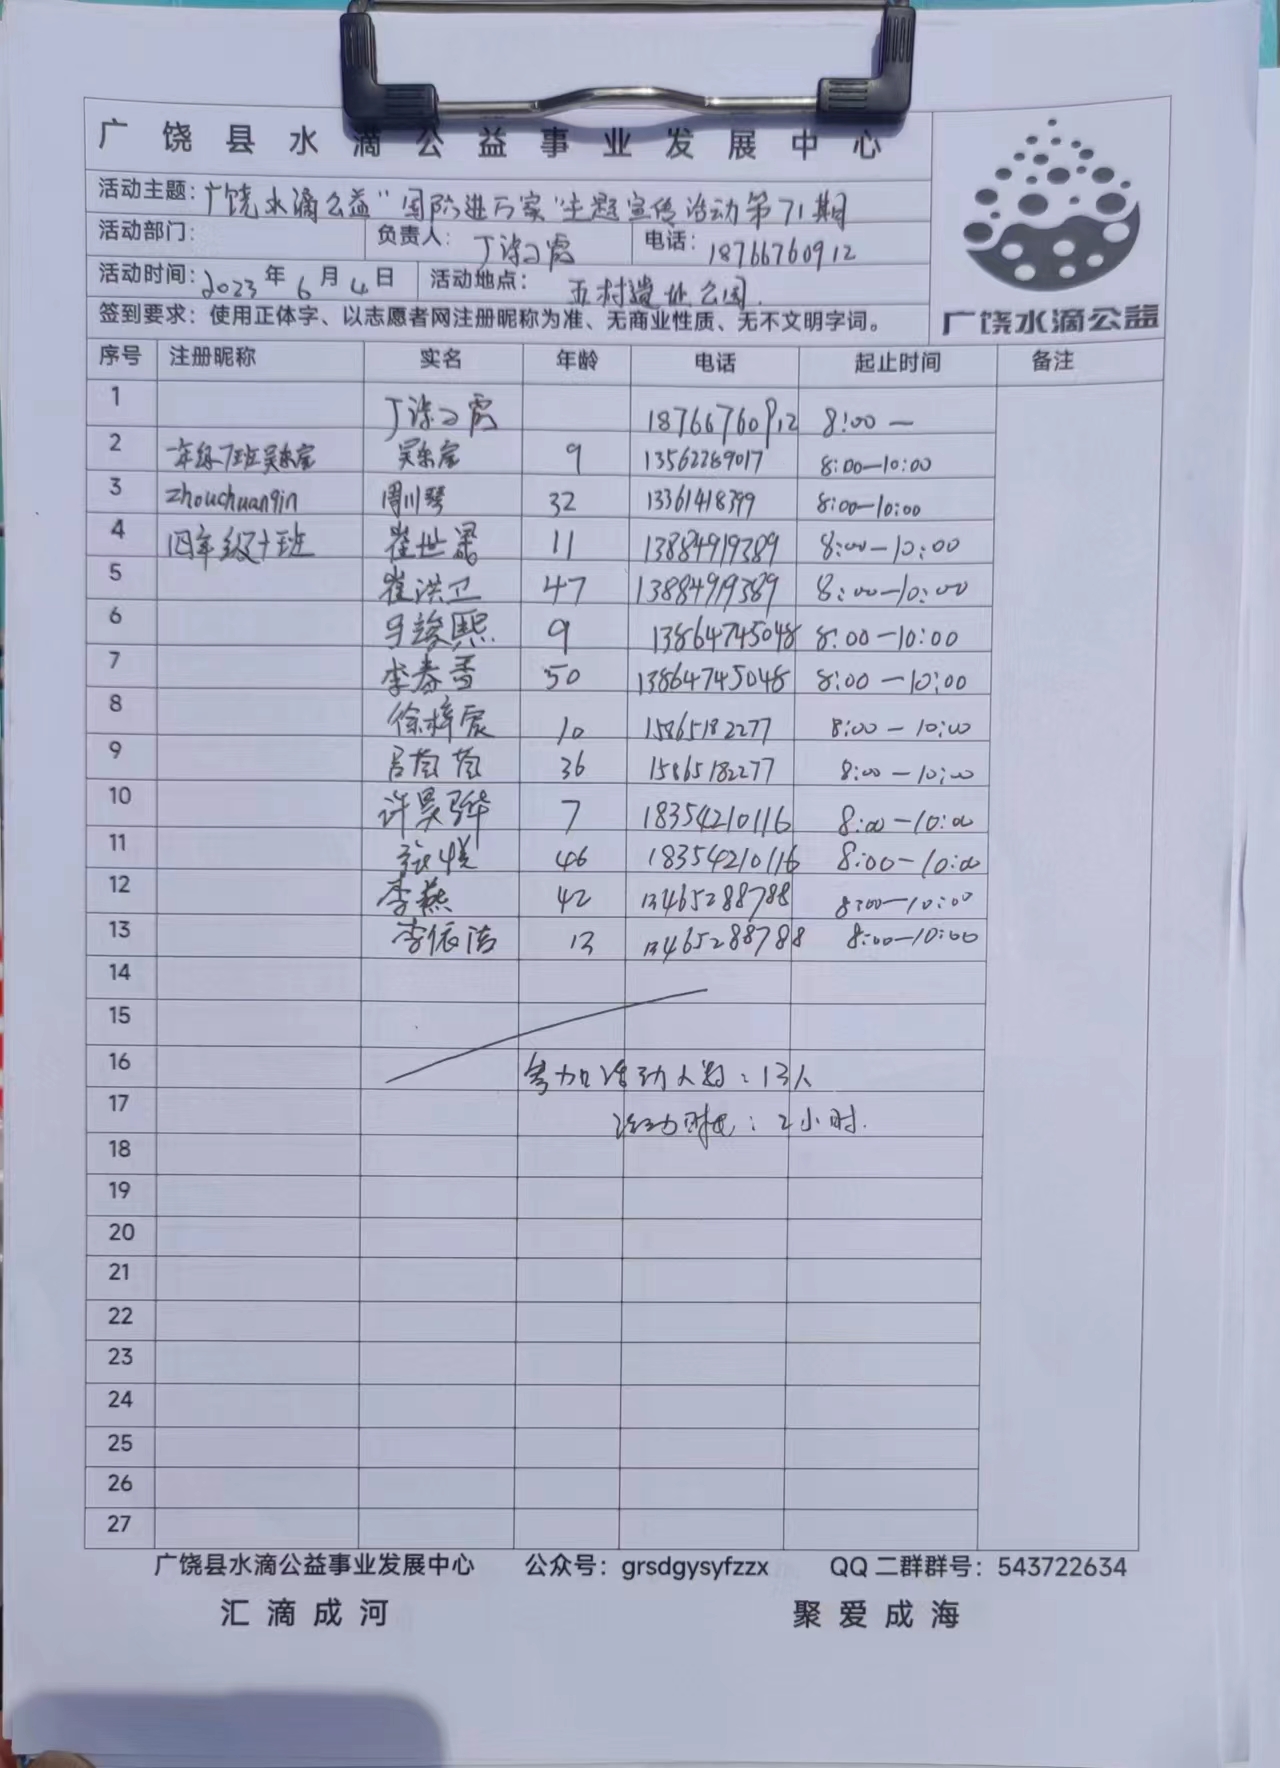 广饶县水滴公益事业发展中心
活动主题：广饶水滴公益"国防进万家"主题宣传活动第71期
活动部门： 负责人： 电话：18766760912
活动时间：2023年6月4日 活动地点：五村遗址公园.
签到要求：使用正体字、以志愿者网注册昵称为准、无商业性质、无不文明字词。
广饶水滴公益
序号 注册昵称 实名 年龄 电话 起止时间 备注
1 18766760912 8:00—
2 9 13562289017 8:00—10:00
3 zhouchuanqin 周川琴 32 13361418399 8:00—10:00
4 四年级十班 崔世 11 13884919389 8:00—10:00
5 崔洪卫 47 13884919389 8:00—10:00
6 竣熙 9 13864745048 8:00—10:00
7 李春香 50 13864745048 8:00—10:00
8 徐梓宸 10 15865182277 8:00—10:00
9 吕苘苘 36 15865182277 8:00—10:00
10 许昊骅 7 18354210116 8:00—10:00
11 张悦 46 18354210116 8:00—10:00
12 李燕 42 13465288788 8:00—10:00
13 李依洁 13 13465288788 8:00—10:00
14
15
16 参加活动人数：13人
17 活动时长：2小时.
18
19
20
21
22
23
24
25
26
27
广饶县水滴公益事业发展中心 公众号：grsdgysyfzzx QQ二群群号：543722634
汇滴成河 聚爱成海